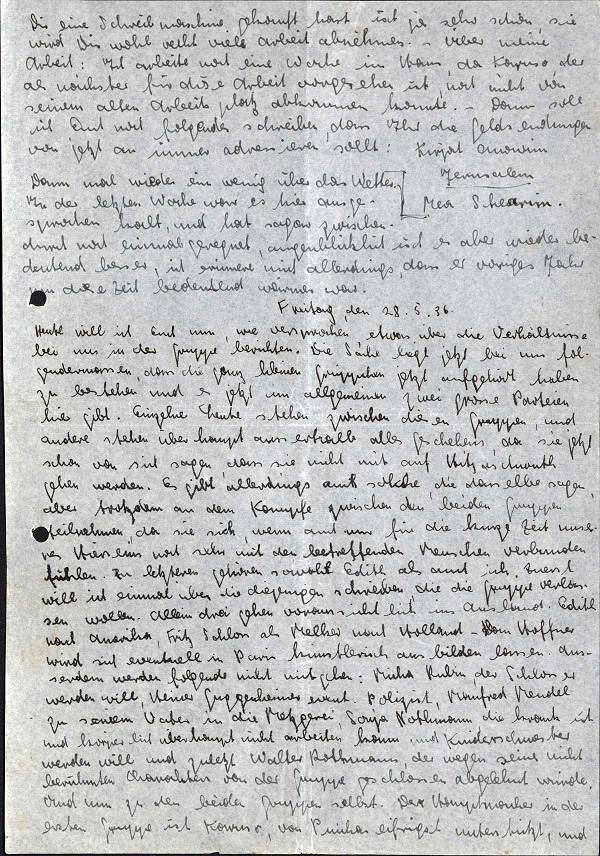 Du eine Schreibmaschine gekauft hast ist ja sehr schön, sie
wird Dir wohl recht viele Arbeit abnehmen. – Über meine
Arbeit: Ich arbeite noch eine Woche im Haus, da Karuso der
als nächster für diese Arbeit vorgesehen ist, noch nicht von
seinem alten Arbeitsplatz abkommen konnte. – Dann soll
ich Euch noch folgendes schreiben, dass Ihr die Geldsendungen
von jetzt an immer adressieren sollt: Kirjat Anavim
Jerusalem
Dann mal wieder ein wenig über das Wetter.
Mea Shearim.
In der letzten Woche war es hier ausge-
sprochen kalt, und hat sogar zwischen-
durch noch einmal geregnet, augenblicklich ist es aber wieder be-
deutend besser, ich erinnere mich allerdings, dass er voriges Jahr
um diese Zeit bedeutend wärmer war.
Freitag, den 28.5.36.
Heute will ich Euch nun, wie versprochen etwas über die Verhältnisse
bei uns in der Gruppe berichten. Die Sache liegt jetzt bei uns fol-
gendermassen, dass die ganz kleinen Grüppchen jetzt aufgehört haben
zu bestehen und es jetzt im allgemeinen zwei grosse Parteien
hier gibt. Einzelne Leute stehen zwischen diesen Gruppen, und
andere stehen überhaupt ausserhalb alles Geschehens, da sie jetzt
schon von sich sagen, dass sie nicht mit auf Hitjaschwuth
gehen werden. Es gibt allerdings auch solche, die dasselbe sagen,
aber trotzdem an dem Kampfe zwischen den beiden Gruppen
teilnehmen, da sie sich, wenn auch nur für die kurze Zeit unse-
res Hierseins noch sehr mit den betreffenden Menschen verbunden
fühlen. Zu letzteren gehören sowohl Edith als auch ich. Zuerst
will ich einmal über die diejenigen schreiben die die Gruppe verlas-
sen wollen. Allein drei gehen voraussichtlich ins Ausland. Edith
nach Amerika, Fritz Schloss als Melker nach Holland – Hoffner
wird sich eventuell in Paris künstlerisch ausbilden lassen. Aus-
serdem werden folgende nicht mitgehen: Micha Rubin der Schlosser
werden will, Heiner Guggenheimer event. Polizist, Manfred Mendel
zu seinem Vater in die Metzgerei, Sonja Nothmann die krank ist
und körperlich überhaupt nicht arbeiten kann und Kinderschwester
werden will und zuletzt Walter Rothmann, der wegen seines nicht
berühmten Charakters von der Gruppe geschlossen abgelehnt wurde.
Und nun zu den beiden Gruppen selbst. Der Hauptmacher in der
ersten Gruppe ist Karuso, von Pinchas eifrigst unterstützt, und